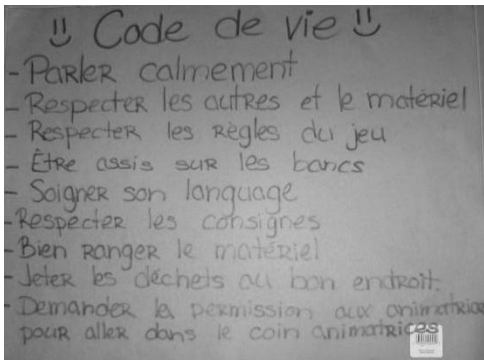 Code de vie
- Parler calmement
- Respecter les autres et le matériel
- Respecter les règles du jeu
- Être assis sur les bancs
- Soigner son language
- Respecter les consignes
- Bien ranger le matériel
- Jeter les déchets au bon endroit.
- Demander la permission aux animatrices
pour aller dans le coin animatrices